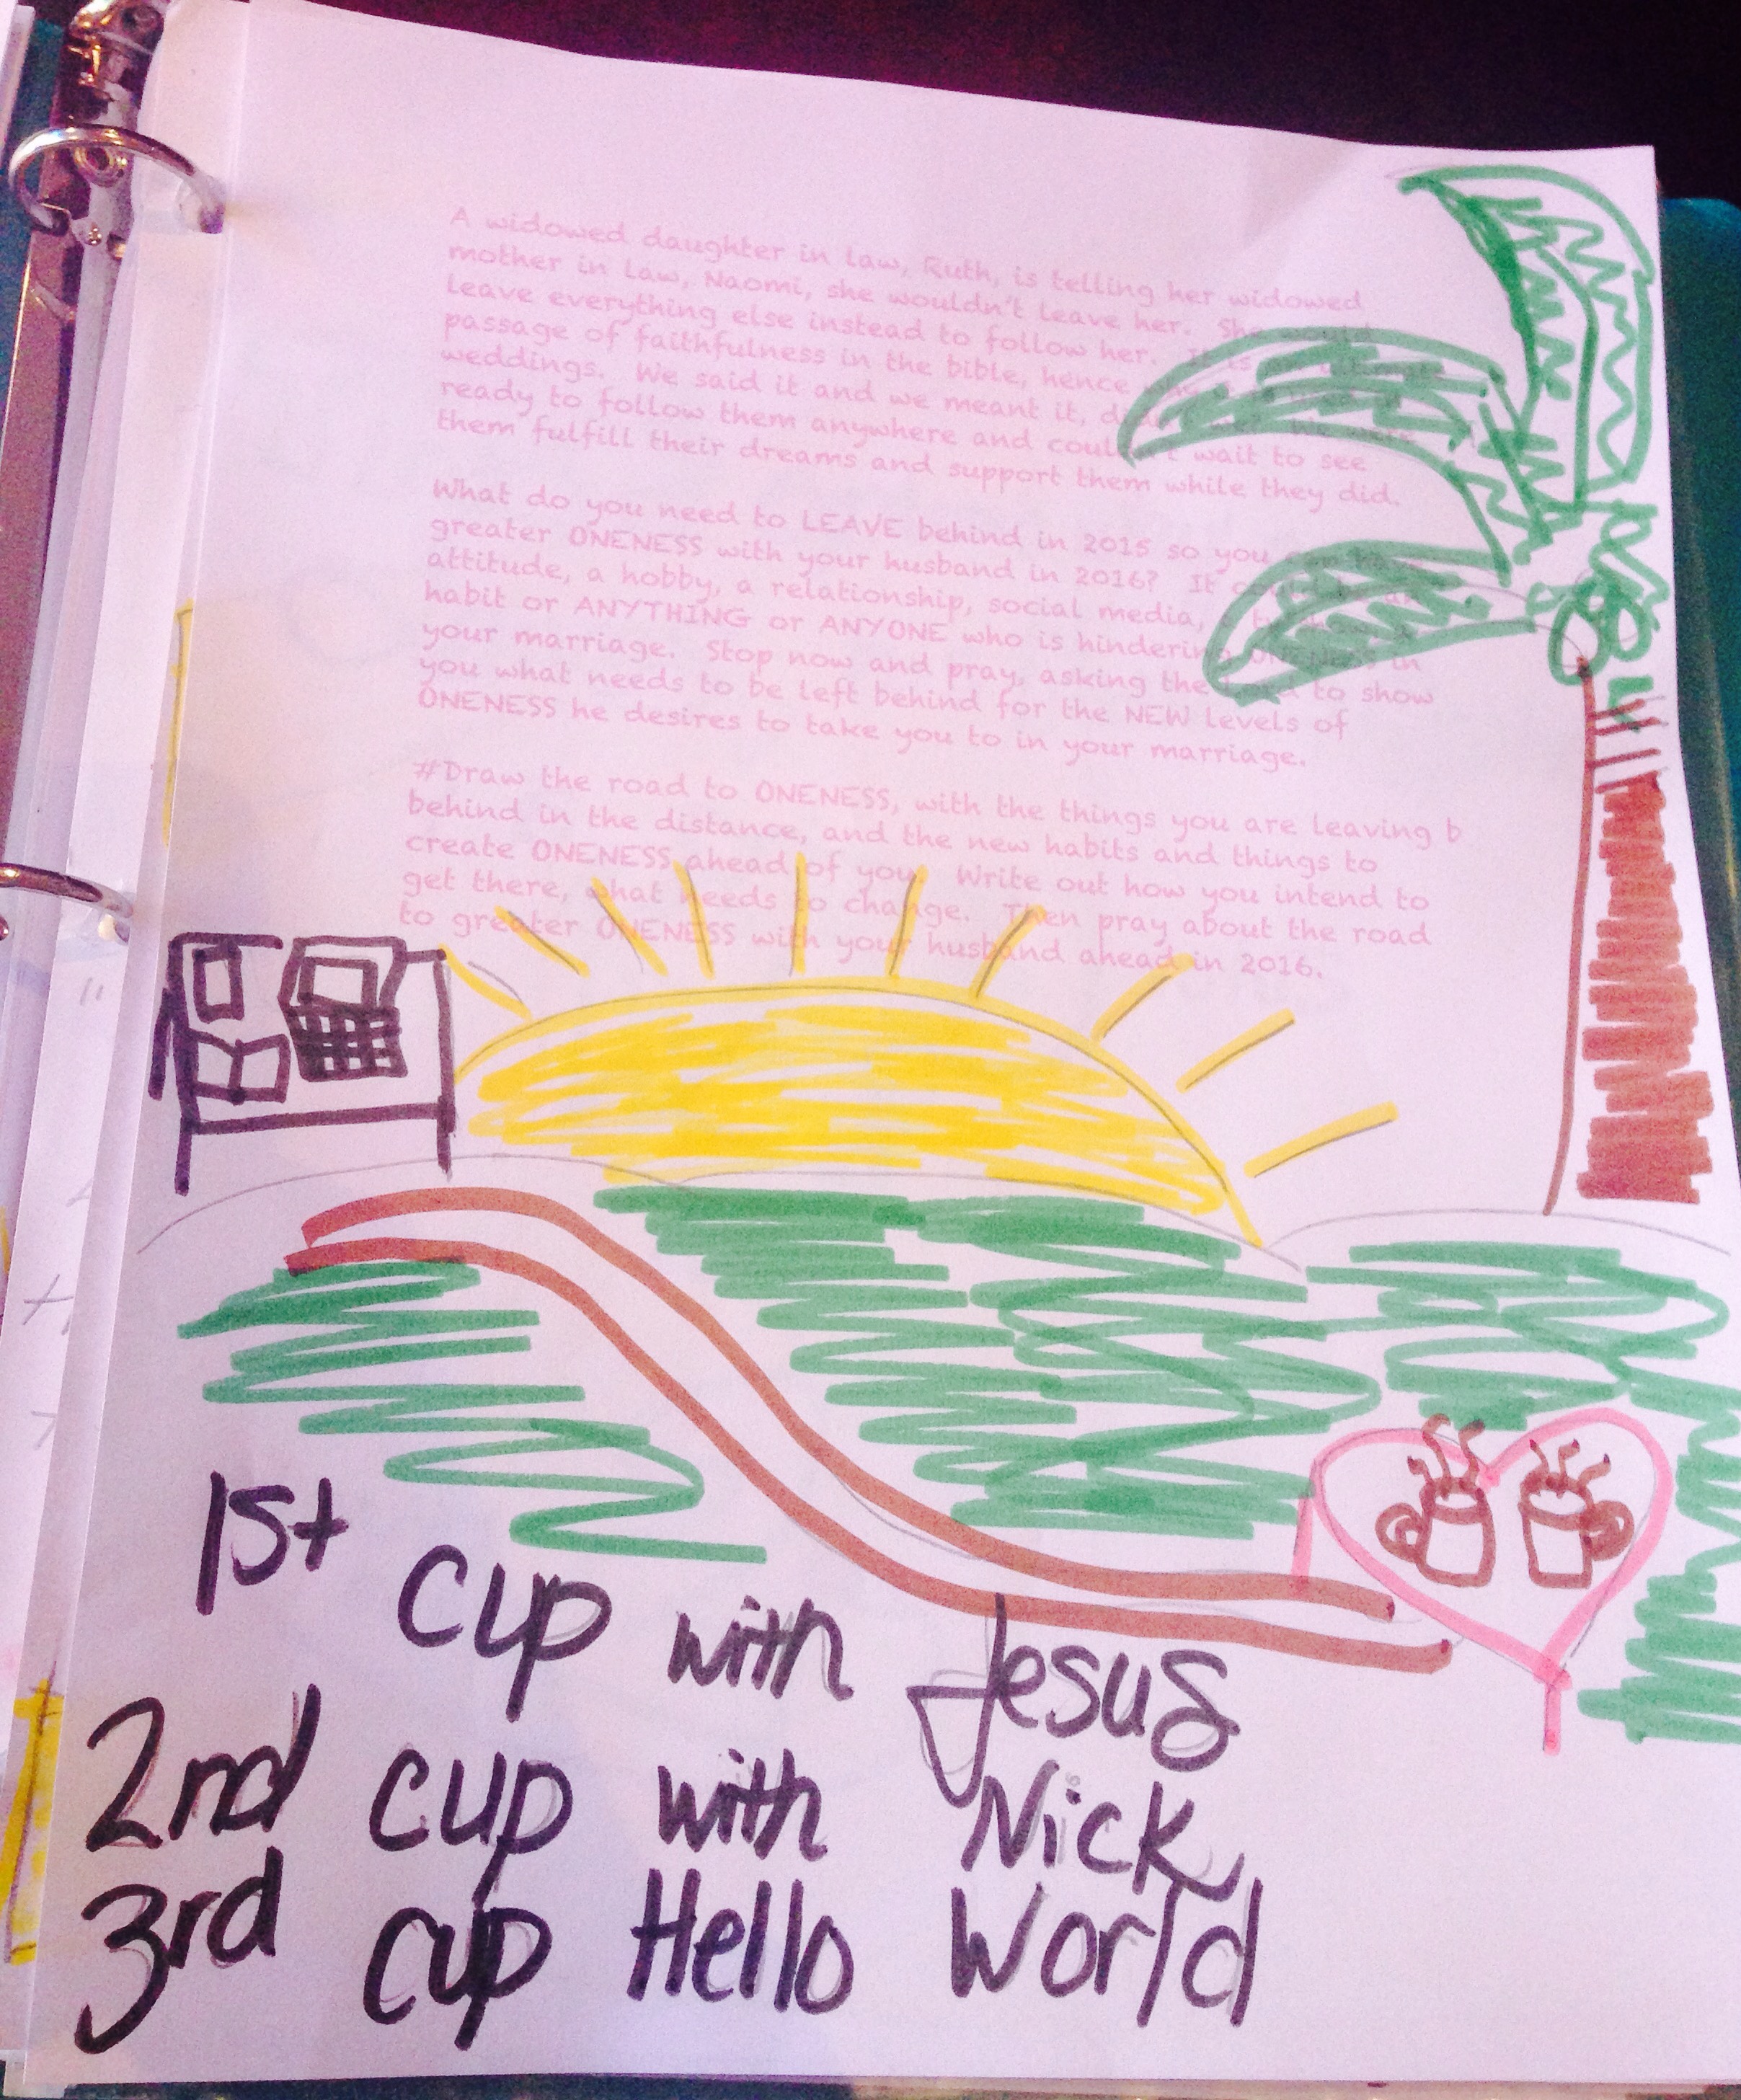 A widowed daughter in law, Ruth, is telling her widowed
mother in law, Naomi, she wouldn't leave her. She would
leave everything else instead to follow her. It is an ultimate
passage of faithfulness in the bible, hence
weddings. We said it and we meant it, didn't we? We were
ready to follow them anywhere and couldn't wait to see
them fulfill their dreams and support them while they did.
What do you need to LEAVE behind in 2015 so you can have
greater ONENESS with your husband in 2016? It could be an
attitude, a hobby, a relationship, social media, a
habit or ANYTHING or ANYONE who is hindering ONENESS in
your marriage. Stop now and pray, asking the Lord to show
you what needs to be left behind for the NEW levels of
ONENESS he desires to take you to in your marriage.
#Draw the road to ONENESS, with the things you are leaving b
behind in the distance, and the new habits and things to
create ONENESS ahead of you. Write out how you intend to
get there, what needs to change. Then pray about the road
to greater ONENESS with your husband ahead in 2016.
1st cup with Jesus
2nd cup with Nick
3rd cup Hello World